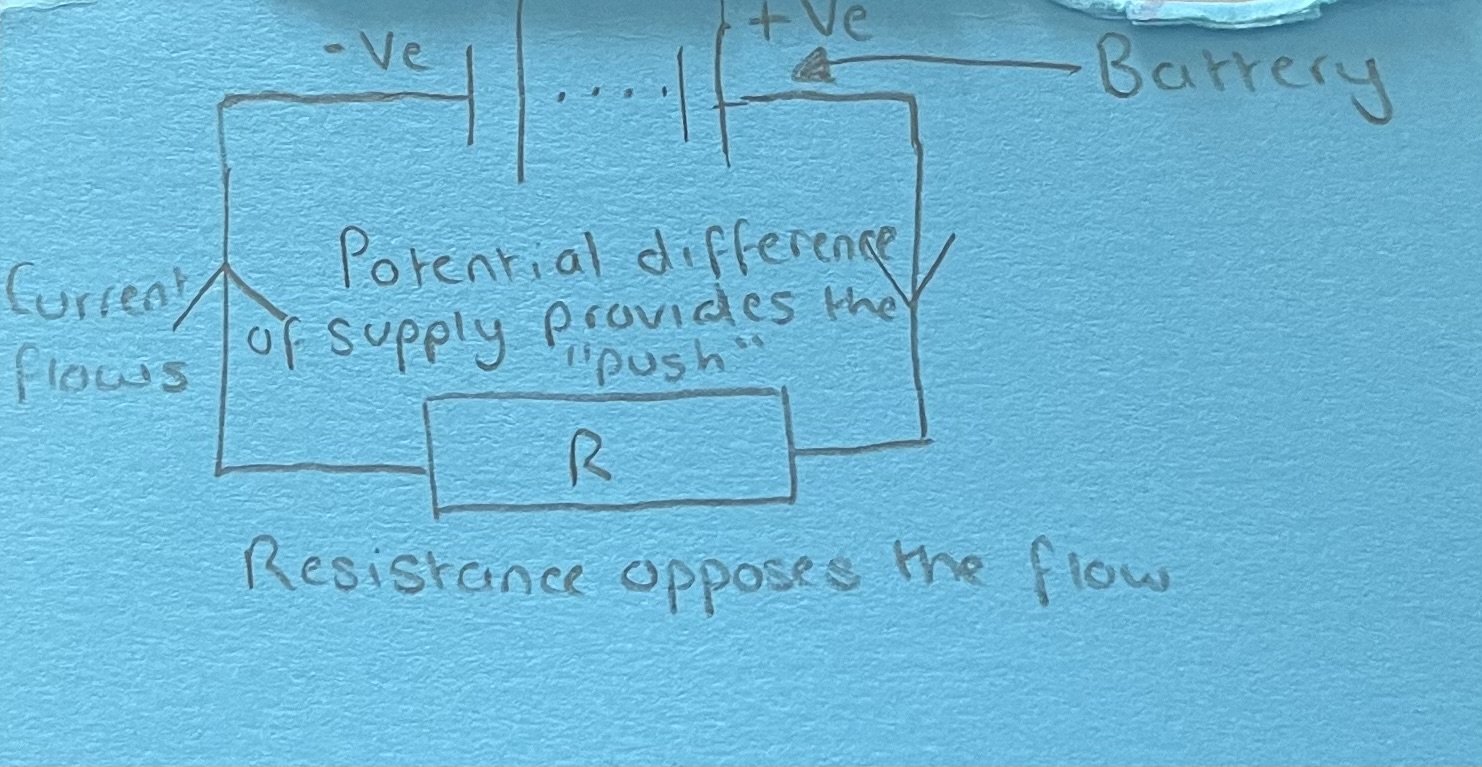 -Ve
+Ve
Battery
Current
flows
Potential difference
of supply provides the
"push"
R
Resistance opposes the flow